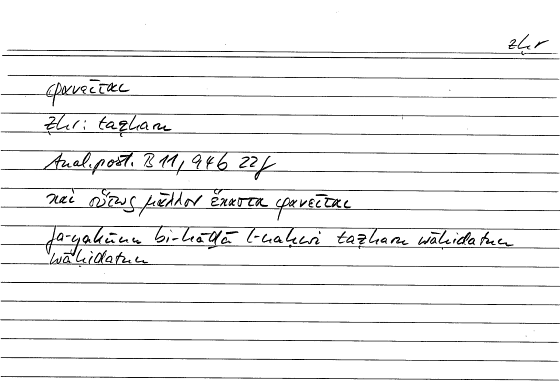 ẓhr
φανεῖται
ẓhr: taẓharu
Anal. post. B 11, 94b 22f
καὶ οὕτως μᾶλλον ἕκαστα φανεῖται
fa-yakūnu bi-hāḏā l-naḥwi taẓharu wāḥidatun
wāḥidatun